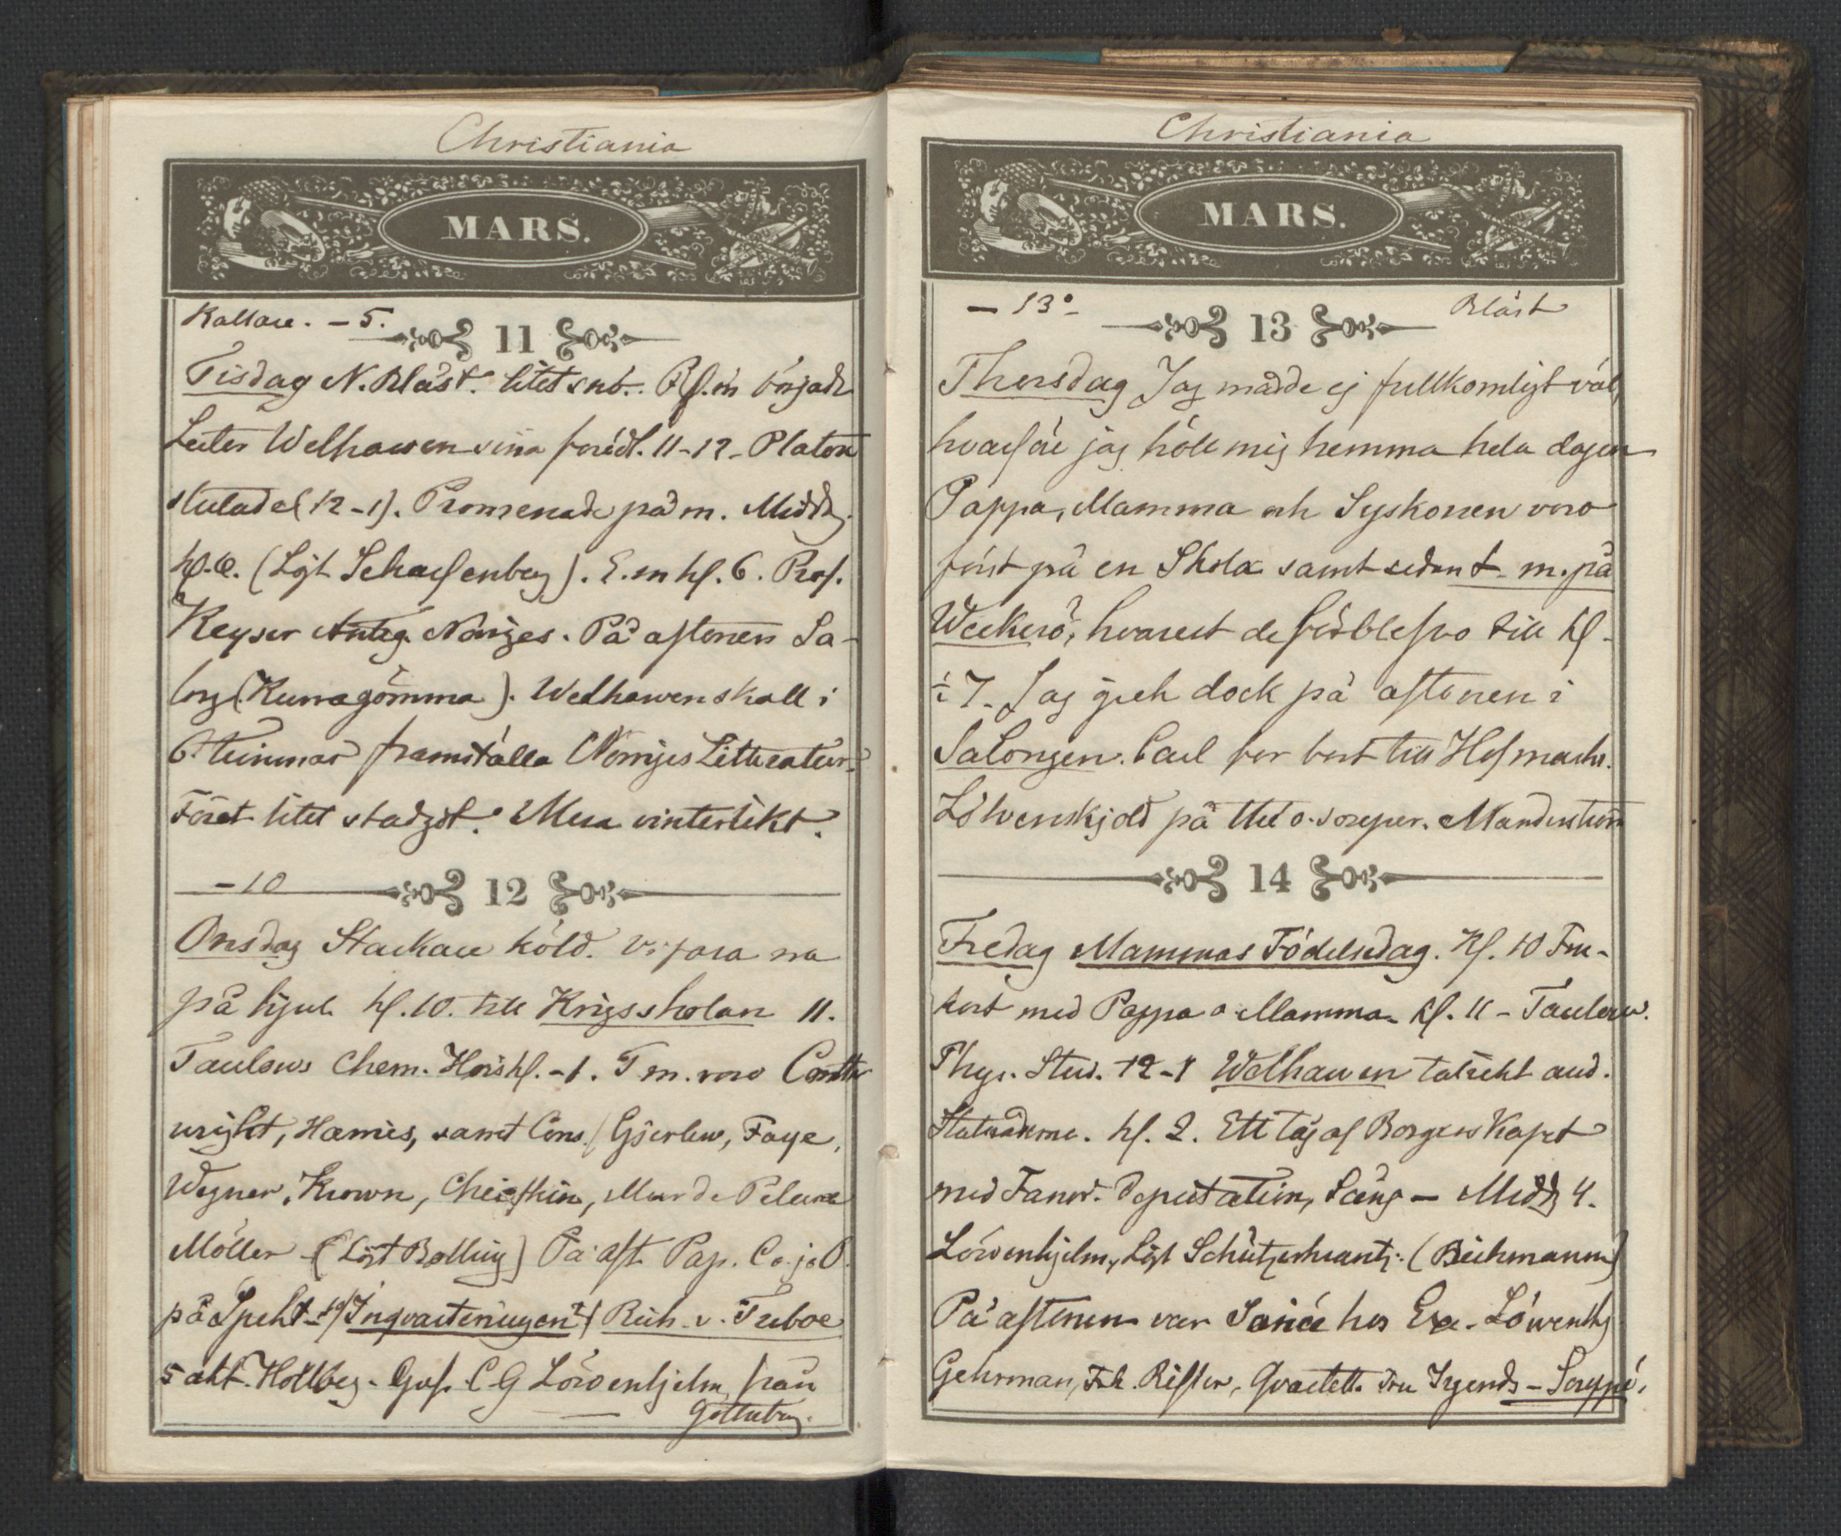 Christiania
MARS.
Kallare. -5.
11
Tisdag N. Blåst. litet snö. F.m började
Welhaven sina föredl. 11-12- Platou
(12-1). Promenade på m. Midd.
kl. (Lgt Scharfenberg). E.m kl. 6. Prof.
Keyser Antag Norriges. På aftonen Sa-
long (Kurragömma). Welhaven skall i
6 timmar framställa Norriges Litteratur.
Föret litet stadgdt. Mera vinterlikt.
-10
12
Onsdag Starkare köld. Vi fara nu
på hjul kl. 10. till Krigsskolan 11.
Taulows Chem. kl. -1. F m. voro
wright, samt Cons. Faye,
Wegner, Krown,
Möller (Löjt Balling) På aft. Pap. C o. jo O.
på Spekt Inqvarteringen Rich v.
5 akt. Holberg. Gref. C G Löwenhjelm från
Götheborg.
Christiania
MARS.
- 13°
Blåst
13
Thorsdag Jag mådde ej fullkomligt väl,
hvarföre jag höll mig hemma hela dagen
Pappa, Mamma och Syskonen voro
först på en Skola samt sedan f. m. på
Weckerö, hvarest de förblefvo till kl.
½ 7. Jag gick dock på aftonen i
Salongen. Carl for bort till Hofmarsk.
Lövenskjold på thé o. souper.
14
Fredag Mammas Födelsedag. Kl. 10 Fru-
kost med Pappa o Mamma. kl. 11 - Taulow.
Phys. Stud. 12-1 Welhaven talrikt aud.
kl. 2. Ett tåg af Borgerskapet
med Fanor. Deputation, Sång - Midd 4.
Löwenhjelm, Löjt Schützercrantz. (Beichmann)
På aftonen var Soirée hos Exc. Löwenhj
Gehrman, Qvartett - Souppé.